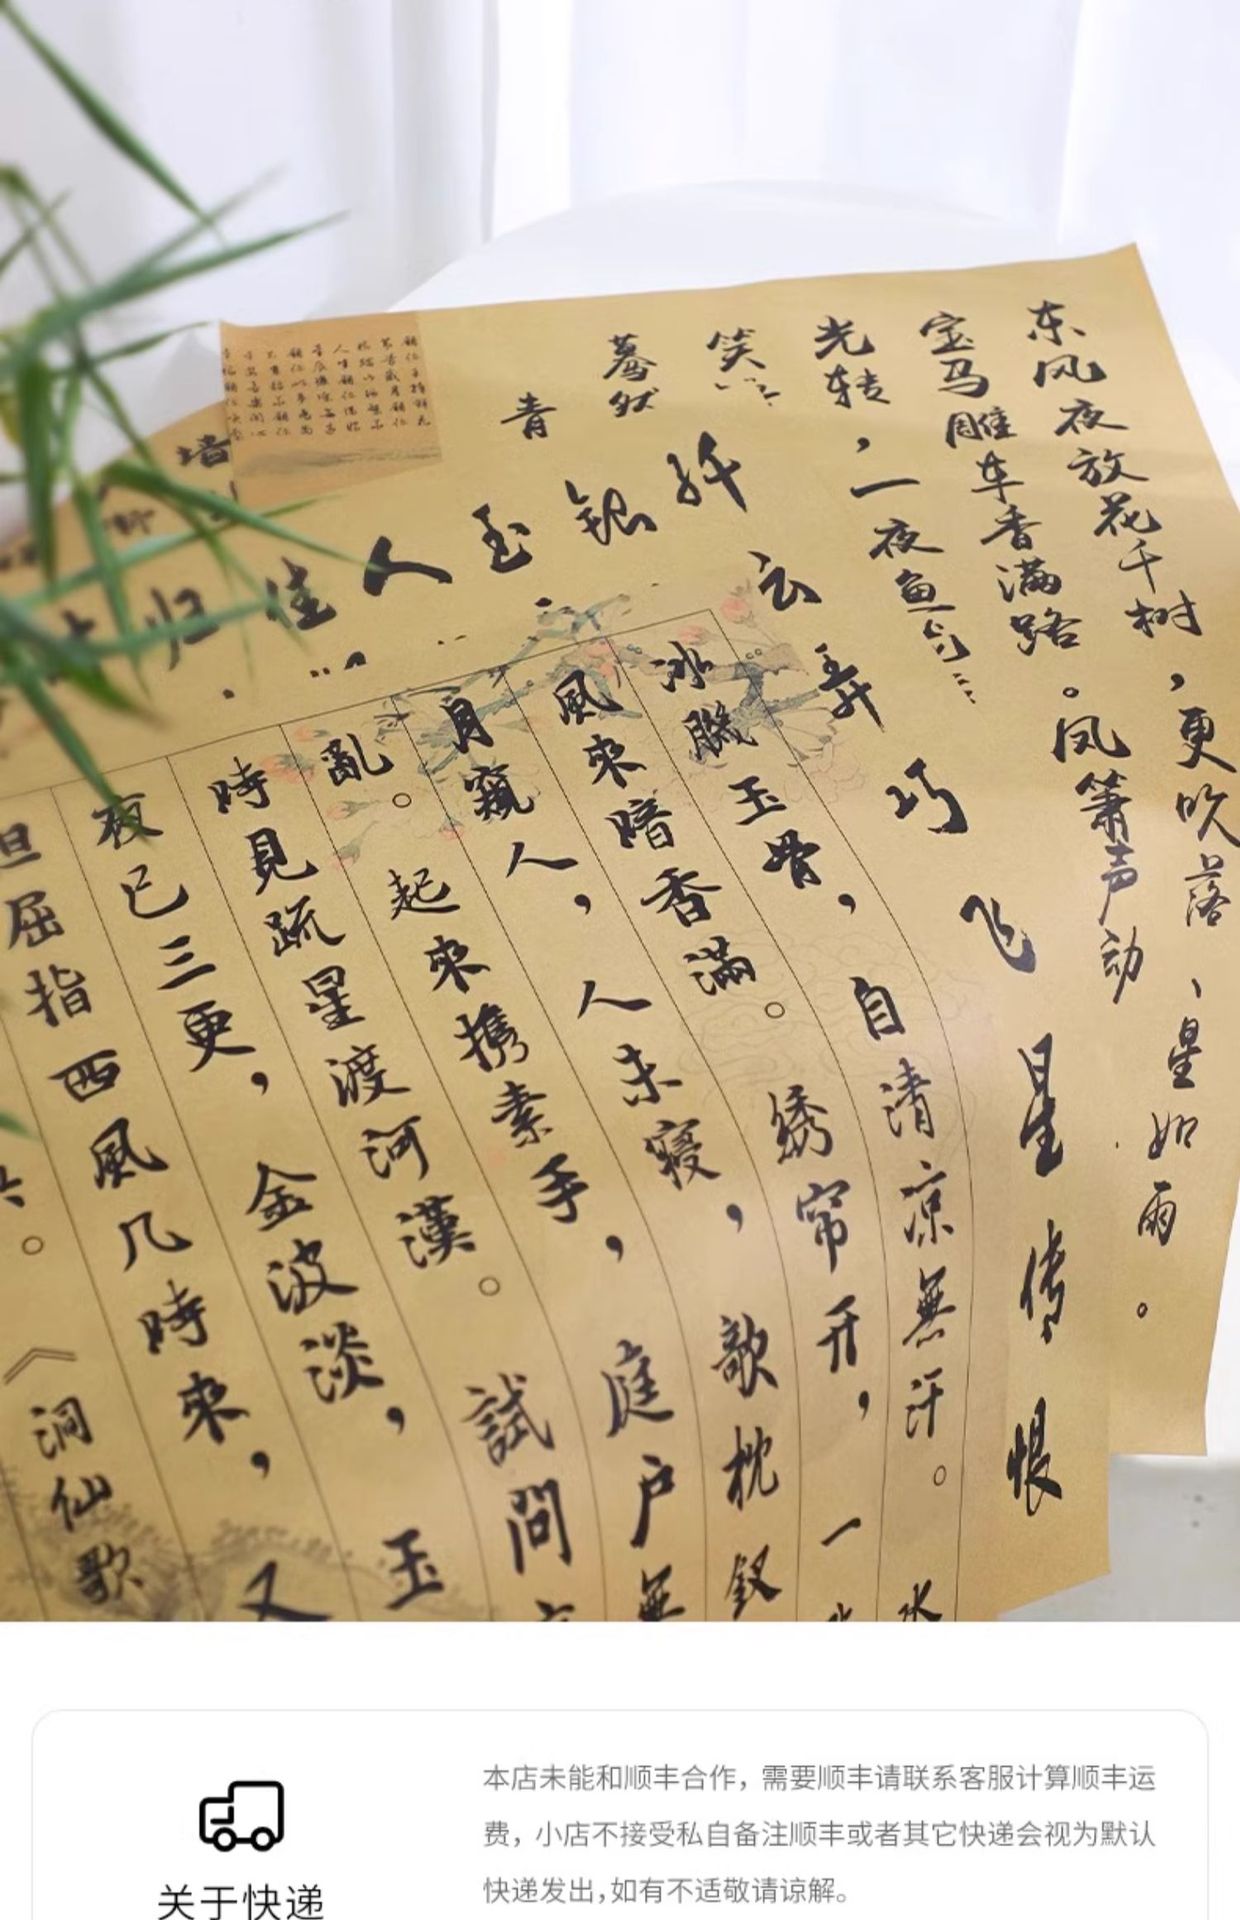 东风夜放花千树，更吹落、星如雨。
宝马雕车香满路。凤箫声动
光转，一夜鱼龙
笑
蓦然
青
纤云弄巧飞星传恨
银
玉
人
佳
归
墙
冰肌玉骨，自清凉無汗。水
風來暗香滿。绣帘开，一
月窺人，人未寝，欹枕釵
亂。起來携素手，庭户無
時見疏星渡河漢。試問
夜已三更，金波淡，玉
但屈指西風几時來，又
《洞仙歌
关于快递
本店未能和顺丰合作，需要顺丰请联系客服计算顺丰运
费，小店不接受私自备注顺丰或者其它快递会视为默认
快递发出,如有不适敬请谅解。